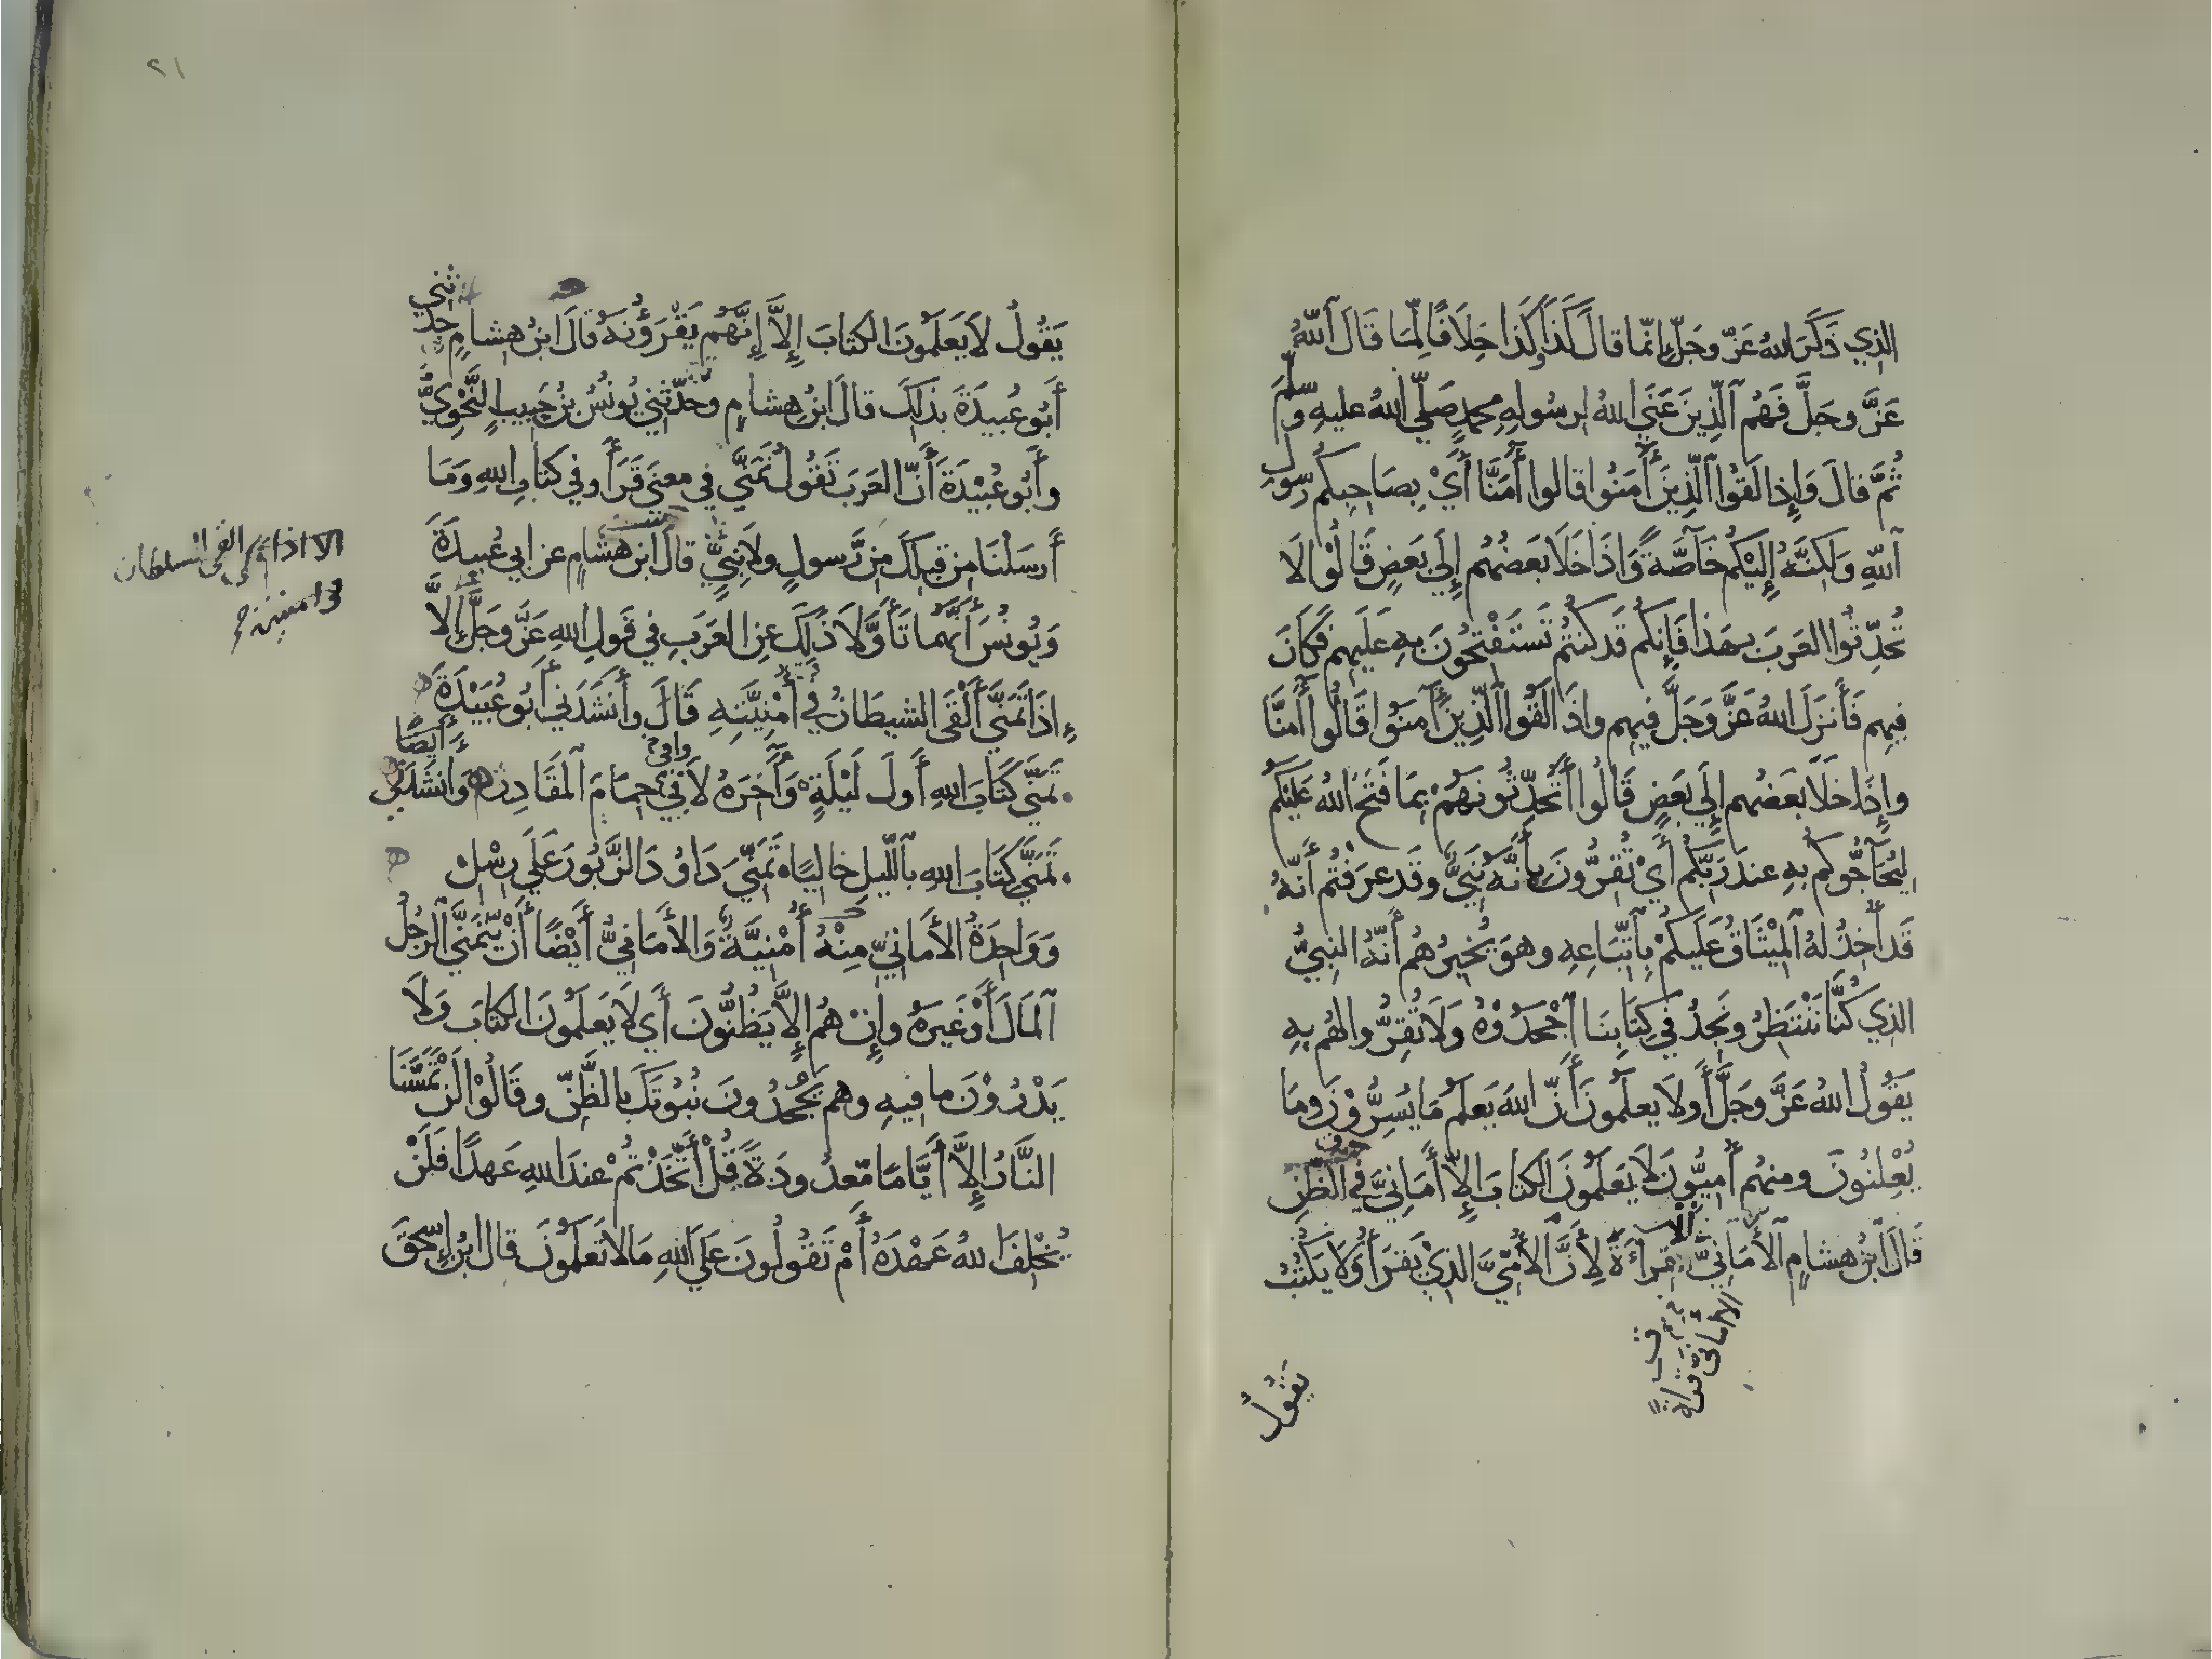 الذي ذَكَرَ اللهُ عَزَّ وجَلَّ إنّما قالَ كَذَا وكَذا خِلَافًا لِّمَا قَالَ اللهُ
عَزَّ وجَلَّ فَهُم الَّذِينَ عَنَي اللهُ لرسُولِهِ محمدٍ صَلّي اللهُ عليهِ وسلّمَ
ثُمَّ قالَ وَإِذا لَقُوا الَّذِينَ أٰمَنُوا قالوا أٰمَنَّا أَيْ بِصَاحِبِكُم رّسُولِ
اللّهِ وَلكِنَّهُ إِلَيْكُم خَآصَّةً وَّاِذَا خَلَا بَعضُهُم إِلَي بَعضٍ قَالُوْا لَا
تُحَدِّثُوا العَرَبَ بهَذا فَاِنكُم قَد كنتُم تَستَفْتِحُونَ بهِ عَلَيهِم فَكَانَ
فِيهِم فَأَنزَلَ اللهُ عَزَّ وَجَلَّ فيهِم واِذَا لَقُوا الَّذِينَ أٰمَنُوا قَالُوا أٰمَنَّا
وإِذَا خَلَا بَعضُهم إِلَي بَعضٍ قَالُوا أَتُحَدِّثُونَهُمْ بِمَا فَتَحَ اللهُ عَلَيْكُم
لِيُحَآجُّوكُم بهِ عندَ رَبِّكُم أَيْ تُقِرُّونَ بِأَنَّهُ نَبِيٌّ وقَد عرَفْتُم أَنّهُ
قَد أُخِذَ لهُ المِيْثَاقُ عَلَيكُمْ بِاتِّبَاعِهِ وهوَ يُخبِرُهُم أَنّهُ النبِيُّ
الذِي كُنَّا نَنْتَظِرُ ونَجِدُ في كِتَابِنَا اجْحَدُوْهُ وَلَا تُقِرُّوا لهُم بِهِ
يَقُولُ اللهُ عَزَّ وجَلَّ أَولَا يعلَمُونَ أَنّ اللهَ يَعلَمُ مَا يُسِرُّوْنَ ومَا
يُعْلِنُونَ ومنهُم أُمِيُّونَ لَا يَعلَمُونَ الكتَابَ إِلاّ أَمَانِيَّ في الظّنِ
قَالَ ابنُ هشامٍ الأَمَانِيَّ إلا قرآءَةً لِأَنَّ الأُمِّيَّ الذِيْ يَقرَأُ وَلَا يَكتُبُ
الامانيّ قراءةً
يَقُولُ
٢١
يَقُولُ لَا يَعلَمُونَ الكتابَ إلاَّ إِنَّهُم يَقْرَؤُنَهُ قالَ ابنُ هشامٍ حدثني
أَبُو عُبيدَةَ بذلكَ قالَ ابنُ هشامٍ وحَدّثني يُونُسُ بنُ حَبِيبٍ النَّحْوِيُّ
وأَبُو عُبيْدَةَ أَنّ العَرَبَ تَقُولُ تَمَنَّي في معنَي قَرَأَ وفي كتابِ اللهِ وَمَا
أَرسَلْنَا مِن قبلِكَ مِن رَّسولٍ ولَا نبِيٍّ قالَ ابنُ هشامٍ عن ابي عُبيدَةَ
وَيُونُسَ أَنَّهُمَا تَأَوَّلَا ذَلِكَ عنِ العَرَبِ في قَولِ اللهِ عَزَّ وجَلَّ إِلاَّ
إِذَا تَمَنَّي أَلْقَى الشيطَانُ في أُمْنِيَّتِهِ قَالَ وأَنشَدَني أَبُو عُبَيْدَةَ
تَمَنَّي كتَابَ اللهِ أَولَ لَيْلَةٍ وَآخِرَهُ لَاقَي حِمَامَ المَقَادِرِ وأنشَدَنِي
أَيضًا
وافى
تَمَنَّي كتَابَ اللهِ بالّليلِ خاليًا تَمَنِّيَ دَاوُدَ الزَّبُورَ عَلَي رِسْلْ
وَوَاحِدَةُ الأَمَانِيِّ مِنْهُ أُمْنِيَّةٌ وَالأَمَانِيُّ أَيْضًا أَنْ يَّتَمَنَّي الرجُلُ
المَالَ أَوْ غَيرَهُ وإِنْ هُم إِلَّا يَظُنُّونَ أَي لَا يَعلَمُونَ الكتَابَ وَلَا
يَدْرُوْنَ ما فِيهِ وهم يَجْحَدُونَ نُبُوّتَكَ بالظَّنِّ وقَالُوْا لَن تَمَسَّنَا
النَّارُ إِلاَّ أَيَّامًا مّعدُودَةً قُلْ أَتَّخَذْتُمْ عندَ اللهِ عَهدًا فَلَنْ
يُخْلِفَ اللهُ عَهْدَهُ أَمْ تَقُولُونَ عَلَي اللهِ مَا لَا تَعلَمُونَ قالَ ابنُ إسحٰقَ
الا اذا تمنى القى الشيطان
في امنيته